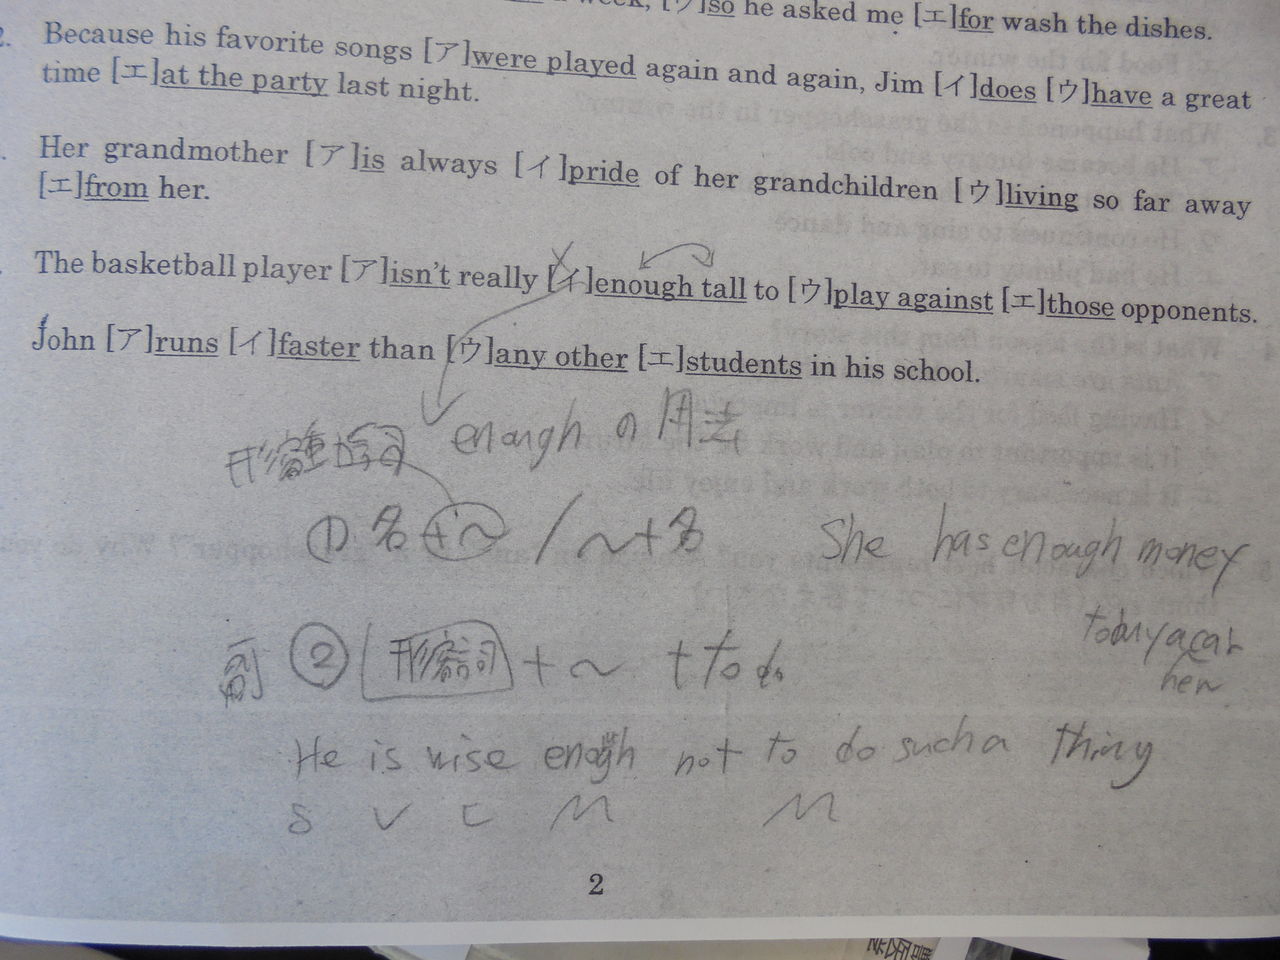 [ウ]so he asked me [エ]for wash the dishes.
2. Because his favorite songs [ア]were played again and again, Jim [イ]does [ウ]have a great
time [エ]at the party last night.
. Her grandmother [ア]is always [イ]pride of her grandchildren [ウ]living so far away
[エ]from her.
. The basketball player [ア]isn't really [イ]enough tall to [ウ]play against [エ]those opponents.
John [ア]runs [イ]faster than [ウ]any other [エ]students in his school.
enough の用法
形容詞
① 名+〜 / 〜+名 She has enough money
to buy a car
副 ② 形容詞 + 〜 + to do
He is wise enough not to do such a thing
S V C M M
2